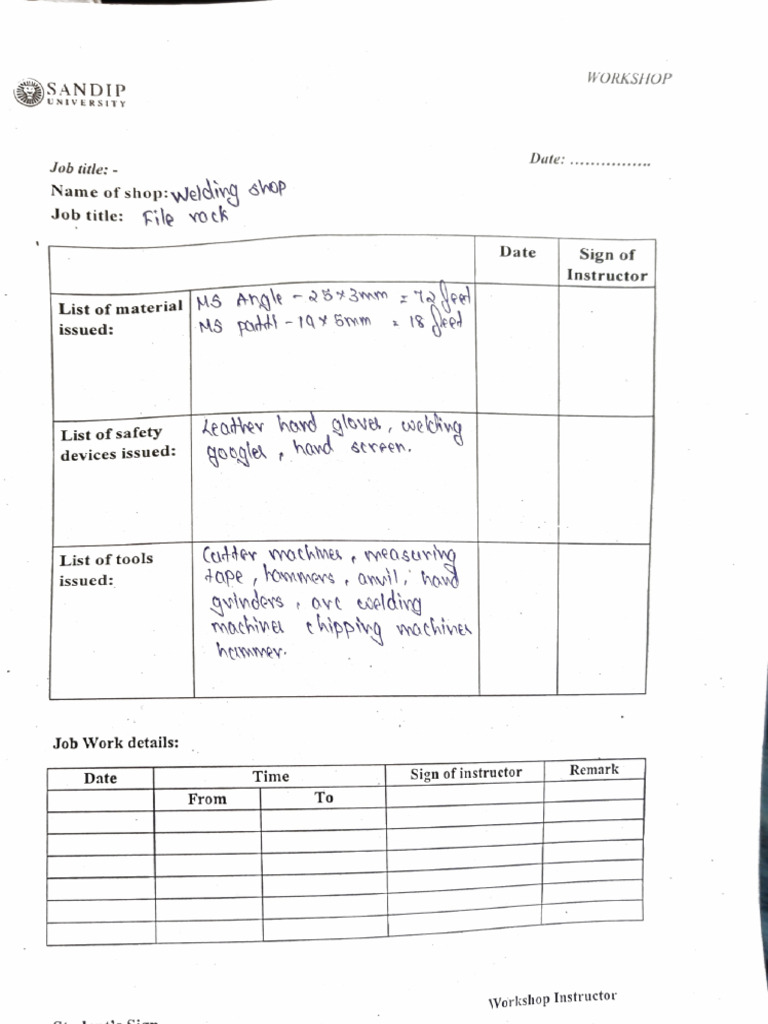 WORKSHOP
SANDIP
UNIVERSITY
Date: ................
Job title: -
Name of shop: Welding shop
Job title: File rock
Date Sign of
Instructor
List of material
issued:
MS Angle - 25 x 3mm = 72 feet
MS - 19 x 5mm = 18 feet
List of safety
devices issued:
Leather hand gloves, welding
googles, hand screen.
List of tools
issued:
Cutter machines, measuring
tape, hammers, anvil, hand
grinders, arc welding
machines chipping machines
hammer.
Job Work details:
Date Time Sign of instructor Remark
From To
Workshop Instructor
Student's Sign